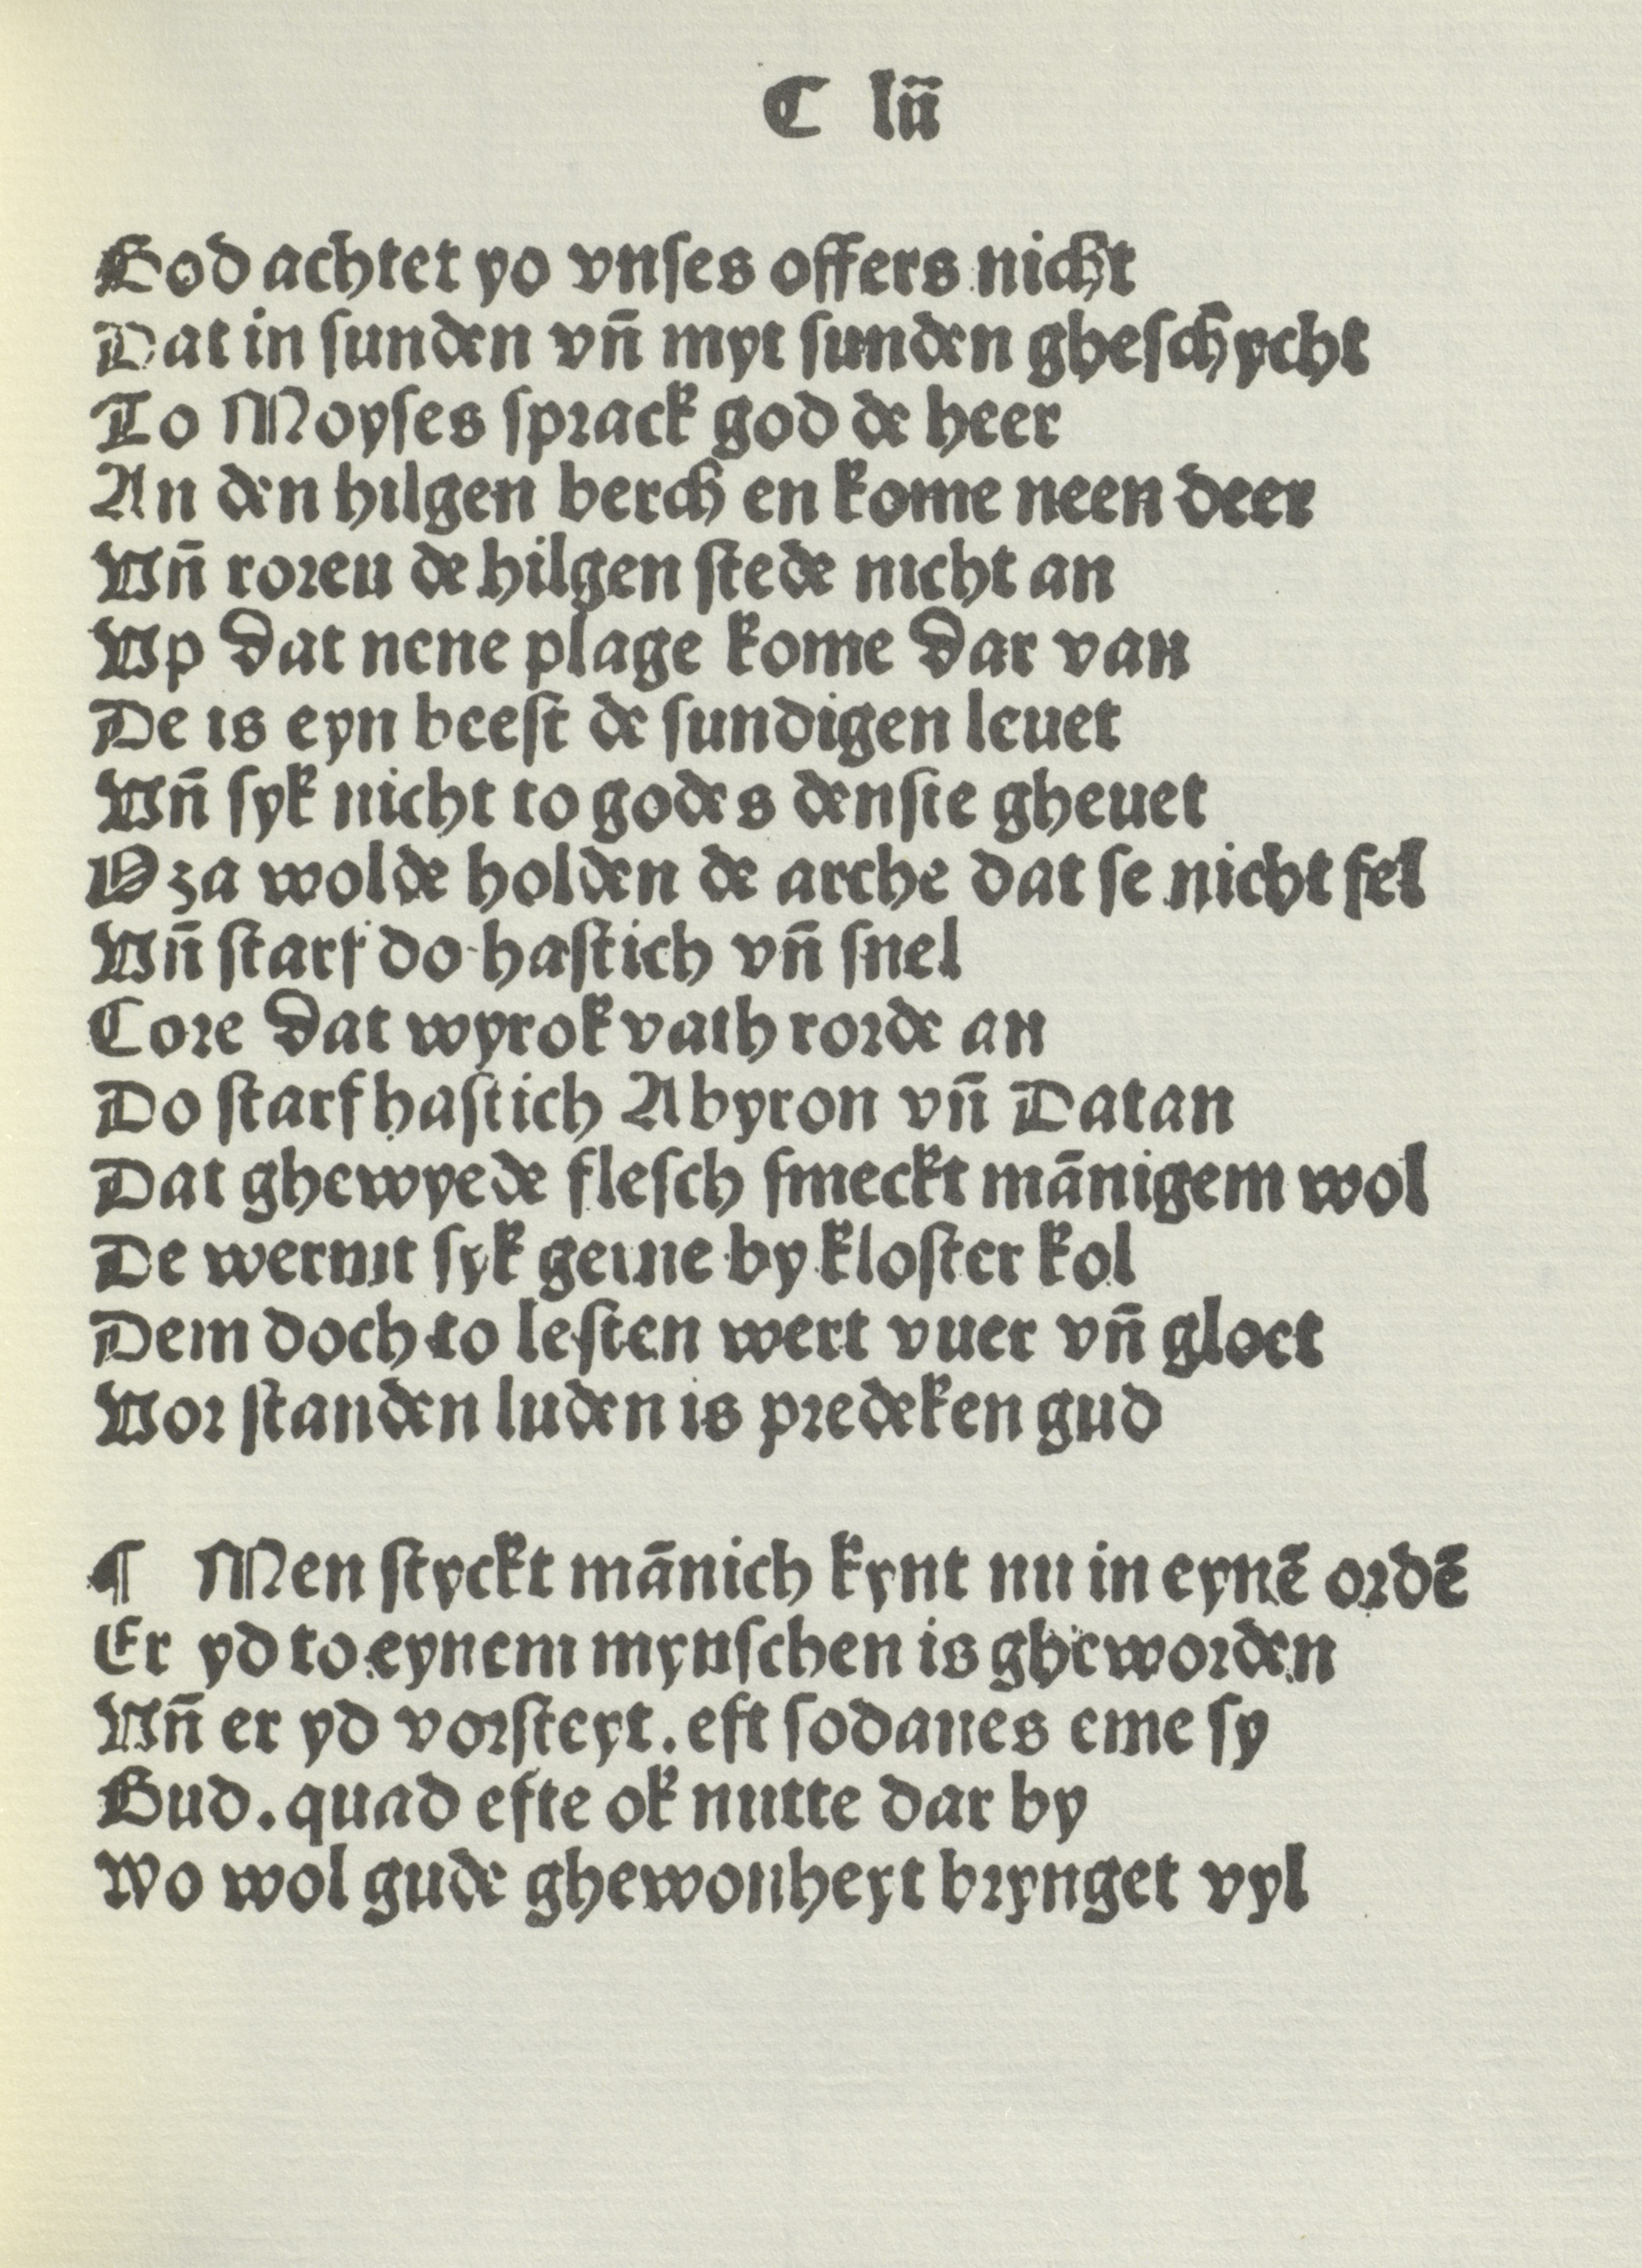 C lii
God achtet yo vnses offers nicht
Dat in sunden vn̄ myt sunden gheschycht
To Moyses sprack god de heer
An den hilgen berch en kome neen deer
Vn̄ roreu de hilgen stede nicht an
Vp dat nene plage kome dar van
De is eyn beest de sundigen leuet
Vn̄ syk nicht to godes denste gheuet
Oza wolde holden de arche dat se nicht fel
Vn̄ starf do hastich vn̄ snel
Core dat wyrok vath rorde an
Do starf hastich Abyron vn̄ Datan
Dat ghewyede flesch smeckt mānigem wol
De wermt syk gerne by kloster kol
Dem doch to lesten wert vuer vn̄ gloet
Vor standen luden is predeken gud
¶ Men styckt mānich kynt nu in eynē ordē
Er yd to eynem mynschen is gheworden
Vn̄ er yd vorsteyt. eft sodanes eme sy
Gud. quad efte ok nutte dar by
Wo wol gude ghewonheyt brynget vyl